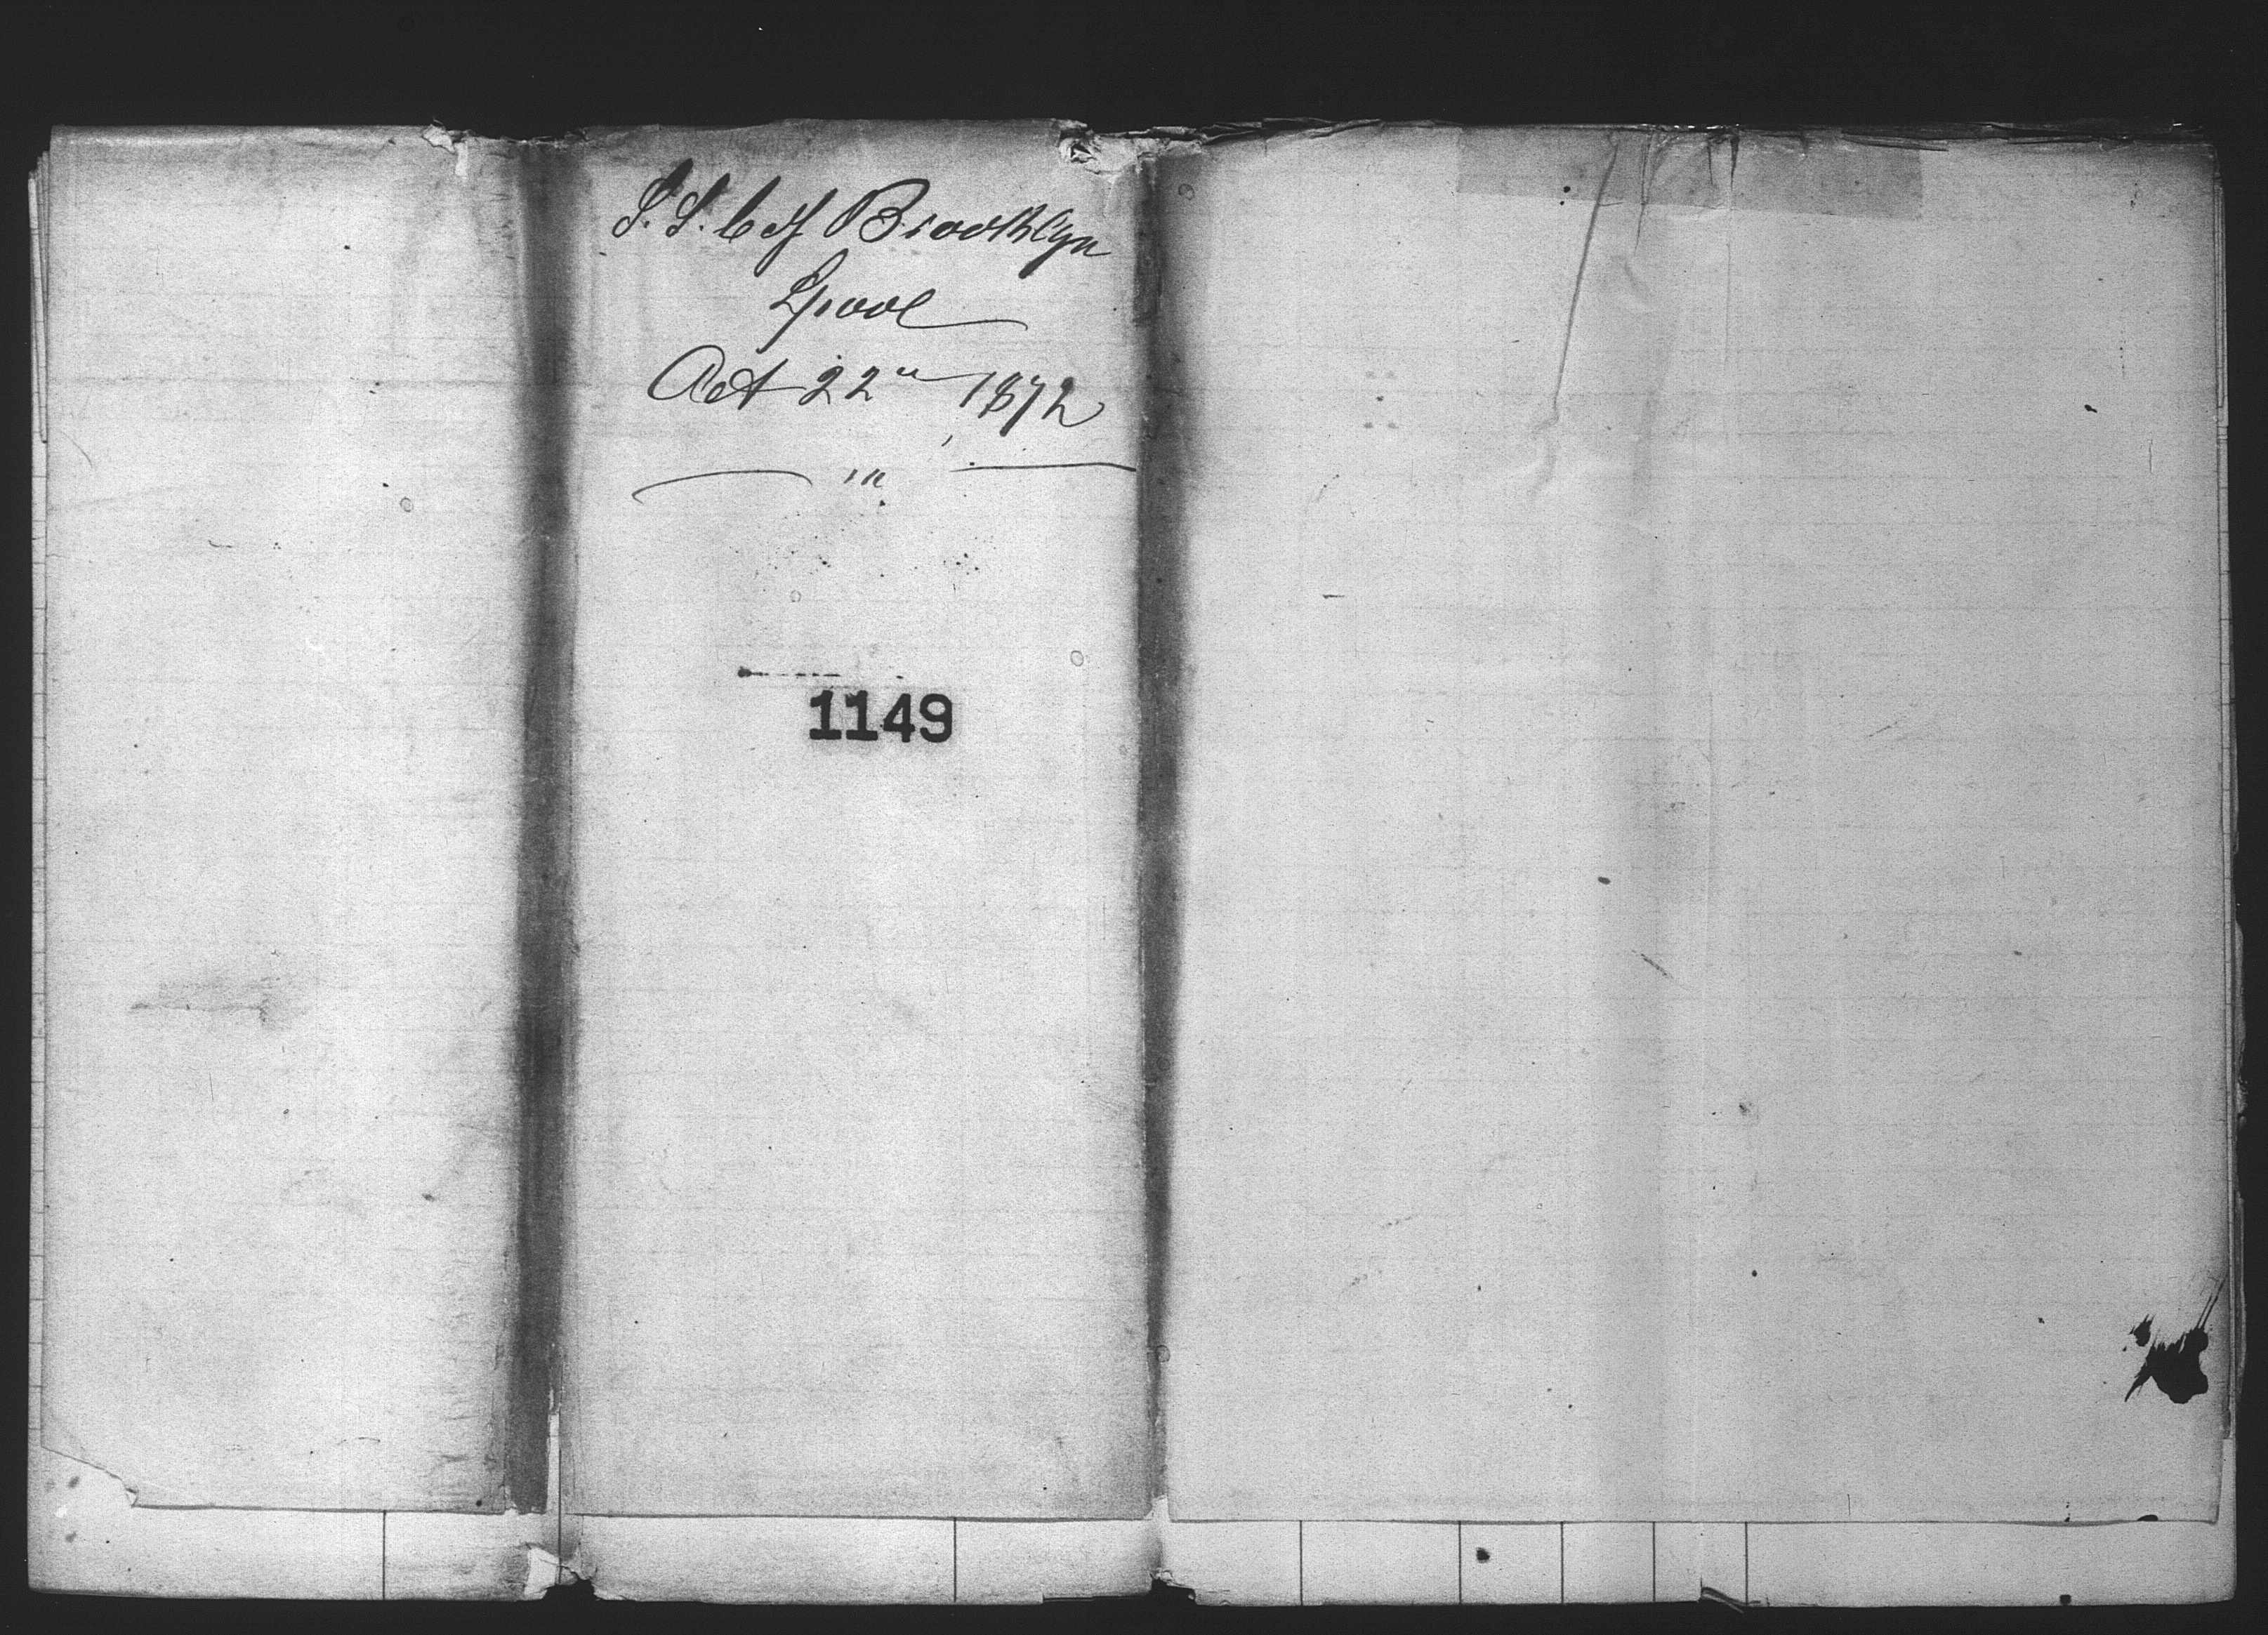 S.S. C of Brooklyn
Lpool
Oct 22" 1872
"
1149